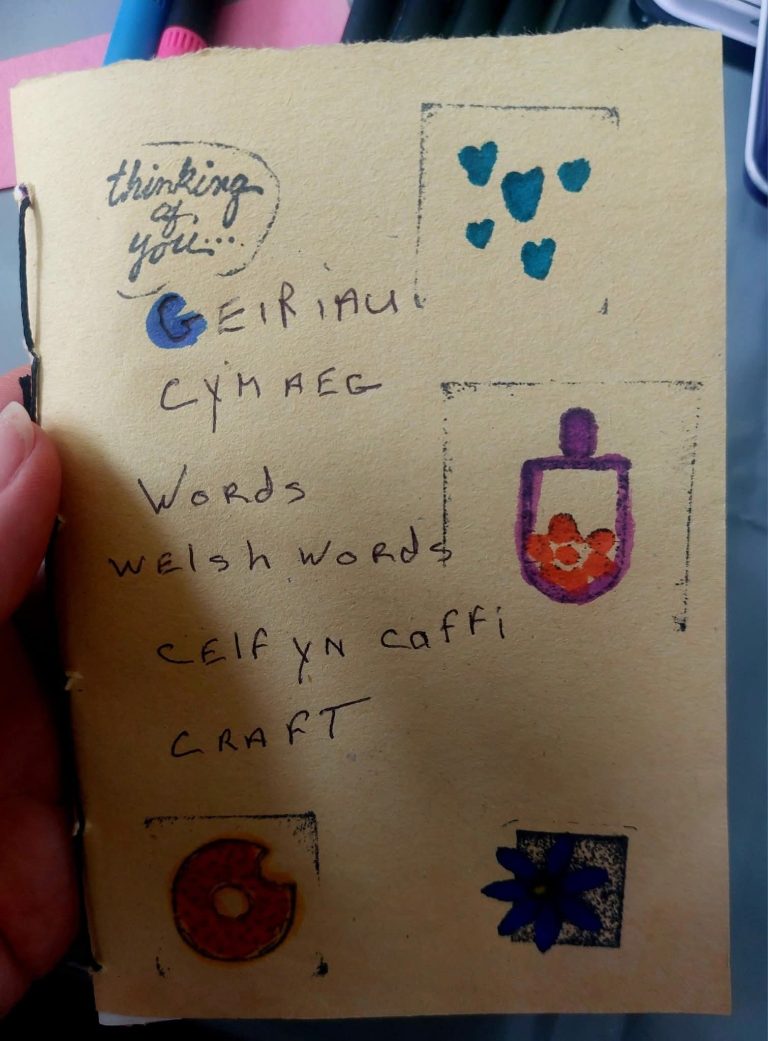 thinking
of
you...
GEIRIAU
CYMAEG
Words
Welsh words
CElF YN Caffi
CRAFT